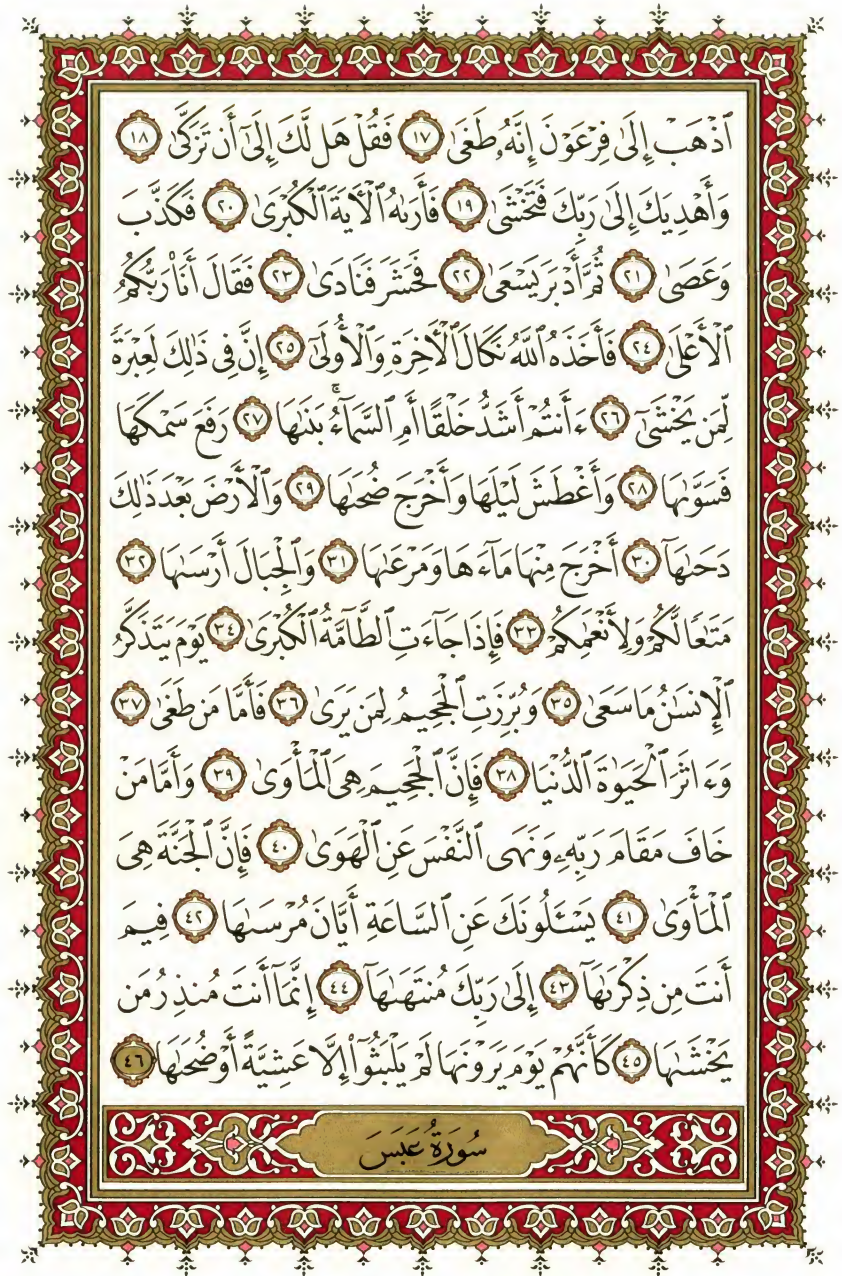 ٱذۡهَبۡ إِلَىٰ فِرۡعَوۡنَ إِنَّهُۥ طَغَىٰ ١٧ فَقُلۡ هَل لَّكَ إِلَىٰٓ أَن تَزَكَّىٰ ١٨
وَأَهۡدِيَكَ إِلَىٰ رَبِّكَ فَتَخۡشَىٰ ١٩ فَأَرَىٰهُ ٱلۡأٓيَةَ ٱلۡكُبۡرَىٰ ٢٠ فَكَذَّبَ
وَعَصَىٰ ٢١ ثُمَّ أَدۡبَرَ يَسۡعَىٰ ٢٢ فَحَشَرَ فَنَادَىٰ ٢٣ فَقَالَ أَنَا۠ رَبُّكُمُ
ٱلۡأَعۡلَىٰ ٢٤ فَأَخَذَهُ ٱللَّهُ نَكَالَ ٱلۡأٓخِرَةِ وَٱلۡأُولَىٰٓ ٢٥ إِنَّ فِي ذَٰلِكَ لَعِبۡرَةٗ
لِّمَن يَخۡشَىٰٓ ٢٦ ءَأَنتُمۡ أَشَدُّ خَلۡقًا أَمِ ٱلسَّمَآءُۚ بَنَىٰهَا ٢٧ رَفَعَ سَمۡكَهَا
فَسَوَّىٰهَا ٢٨ وَأَغۡطَشَ لَيۡلَهَا وَأَخۡرَجَ ضُحَىٰهَا ٢٩ وَٱلۡأَرۡضَ بَعۡدَ ذَٰلِكَ
دَحَىٰهَآ ٣٠ أَخۡرَجَ مِنۡهَا مَآءَهَا وَمَرۡعَىٰهَا ٣١ وَٱلۡجِبَالَ أَرۡسَىٰهَا ٣٢
مَتَٰعٗا لَّكُمۡ وَلِأَنۡعَٰمِكُمۡ ٣٣ فَإِذَا جَآءَتِ ٱلطَّآمَّةُ ٱلۡكُبۡرَىٰ ٣٤ يَوۡمَ يَتَذَكَّرُ
ٱلۡإِنسَٰنُ مَا سَعَىٰ ٣٥ وَبُرِّزَتِ ٱلۡجَحِيمُ لِمَن يَرَىٰ ٣٦ فَأَمَّا مَن طَغَىٰ ٣٧
وَءَاثَرَ ٱلۡحَيَوٰةَ ٱلدُّنۡيَا ٣٨ فَإِنَّ ٱلۡجَحِيمَ هِيَ ٱلۡمَأۡوَىٰ ٣٩ وَأَمَّا مَنۡ
خَافَ مَقَامَ رَبِّهِۦ وَنَهَى ٱلنَّفۡسَ عَنِ ٱلۡهَوَىٰ ٤٠ فَإِنَّ ٱلۡجَنَّةَ هِيَ
ٱلۡمَأۡوَىٰ ٤١ يَسۡـَٔلُونَكَ عَنِ ٱلسَّاعَةِ أَيَّانَ مُرۡسَىٰهَا ٤٢ فِيمَ
أَنتَ مِن ذِكۡرَىٰهَآ ٤٣ إِلَىٰ رَبِّكَ مُنتَهَىٰهَآ ٤٤ إِنَّمَآ أَنتَ مُنذِرُ مَن
يَخۡشَىٰهَا ٤٥ كَأَنَّهُمۡ يَوۡمَ يَرَوۡنَهَا لَمۡ يَلۡبَثُوٓاْ إِلَّا عَشِيَّةً أَوۡ ضُحَىٰهَا ٤٦
سُورَةُ عَبَسَ